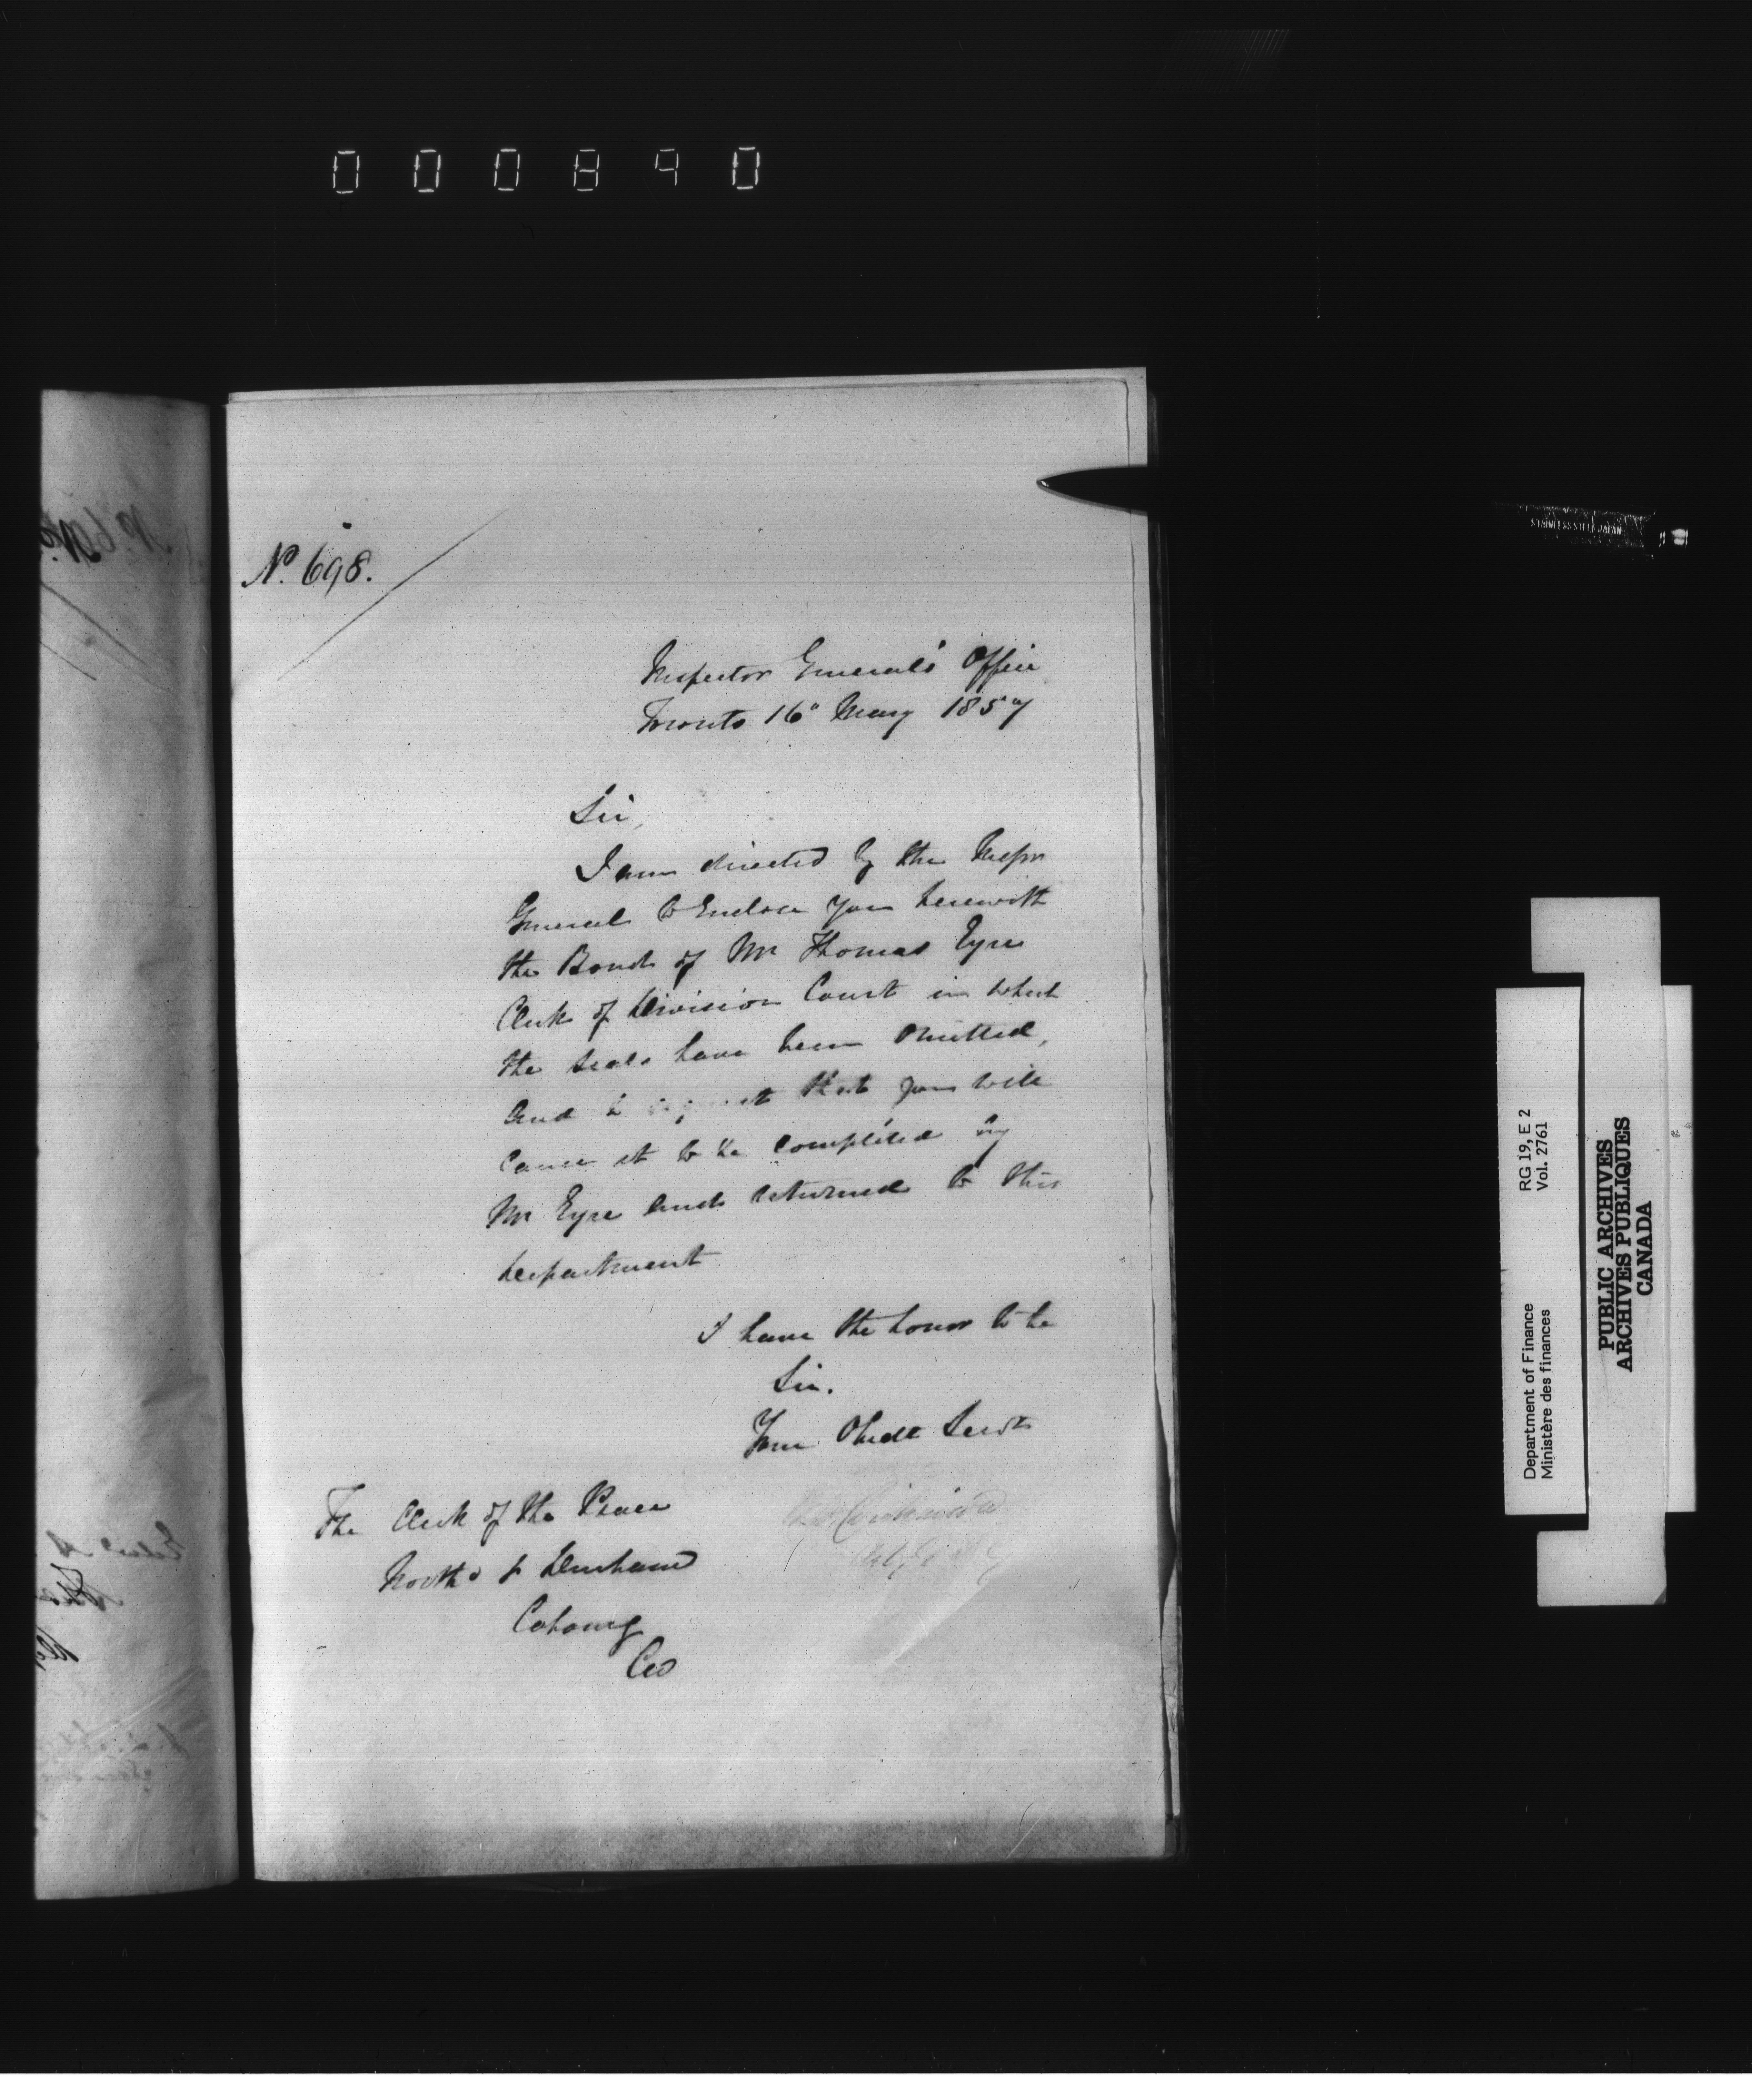 000890
No. 698.
Inspector General's Office
Toronto 16" May 1857
Sir,
I am directed by the Inspr
General to Enclose you herewith
the Bond of Mr Thomas Eyre
Clerk of Division Court in which
the seals have been omitted,
and to request that you will
cause it to be completed by
Mr Eyre and returned to this
Department
I have the honor to be
Sir.
Your Obedt Servt
The Clerk of the Peace
Northd & Durham
Cobourg
CW
STAINLESS STEEL JAPAN
Department of Finance RG 19, E 2
Ministère des finances Vol. 2761
PUBLIC ARCHIVES
ARCHIVES PUBLIQUES
CANADA